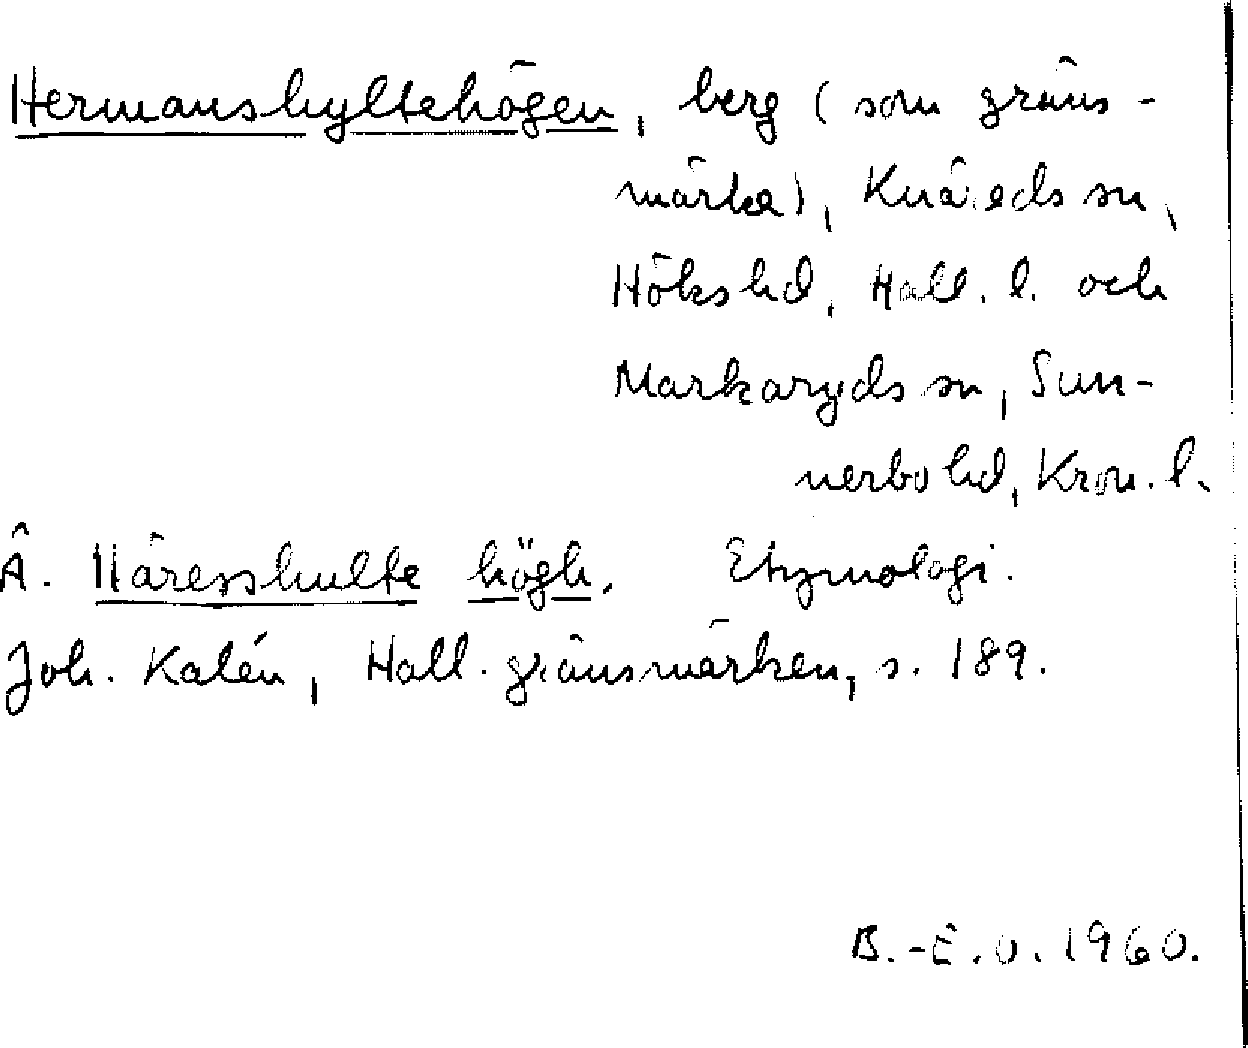 Hermanshyltehögen, berg (som gräns-
märke), Knäreds sn,
Höks hd, Hall. l. och
Markaryds sn, Sun-
nerbo hd, Kron. l.
Ä. Häresshulte högh. Etymologi.
Joh. Kalén, Hall. gränsmärken, s. 189.
B.-E.O. 1960.